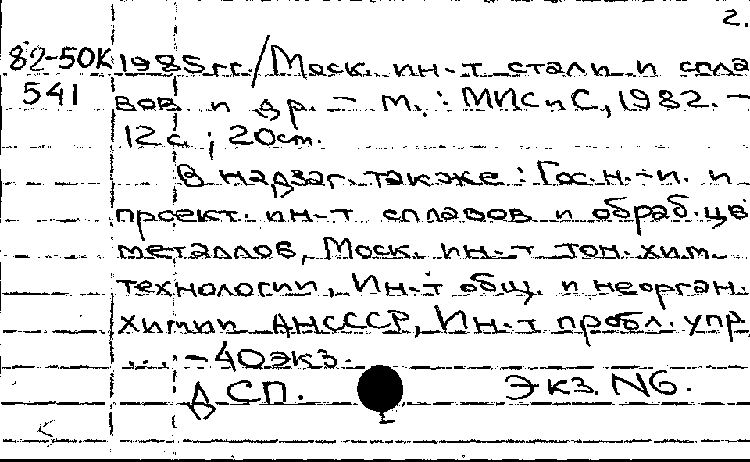 2.
82-50К 1985гг./Моск. ин-т стали и спла
541 вов и др. – М.: МИСиС, 1982. –
12с.; 20см.
В надзаг. также: Гос.н.-и. и
проект. ин-т сплавов и обраб. цв
металлов, Моск. ин-т тон. хим.
технологии, Ин-т общ. и неорган.
химии АНСССР, Ин-т пробл. упр
... – 40экз.
ДСП. Экз. N6.